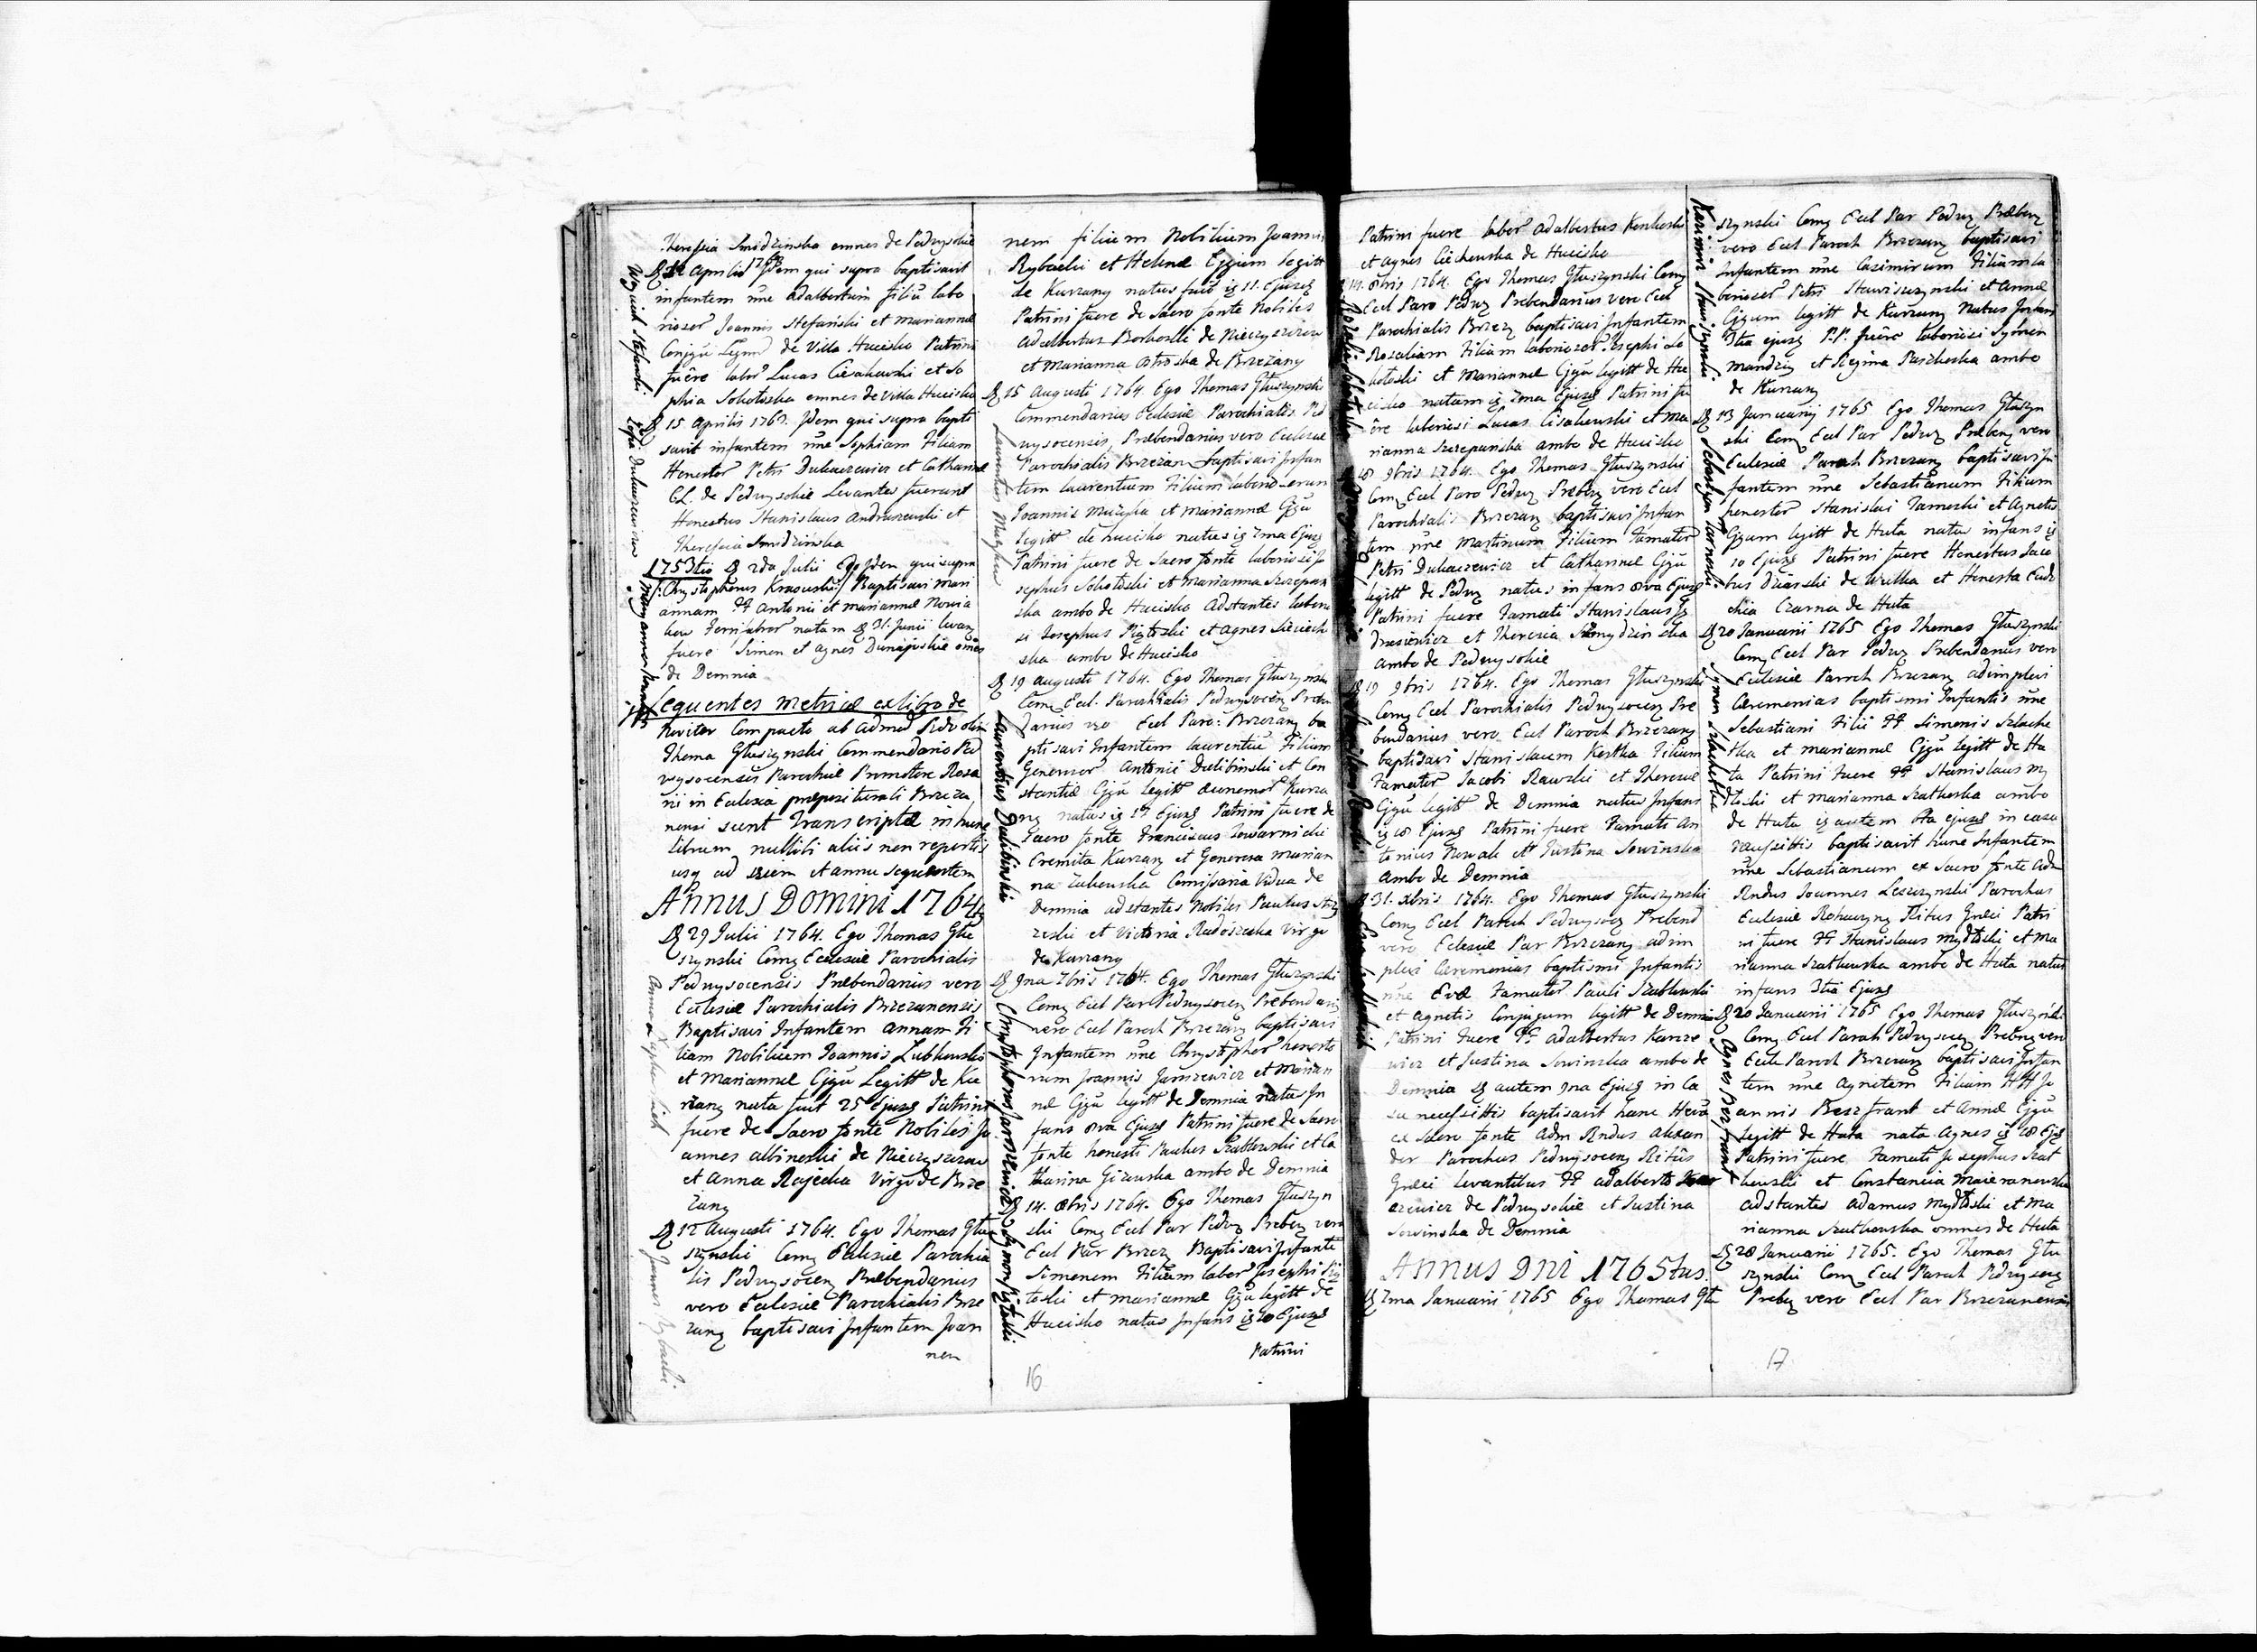 Theressia Smidzinska omnes de Podwysokie
12 Aprilis 1763 Idem qui supra baptisavit
infantem nne Adalbertum filiu labo
riosor Joannis Stefański et Mariannæ
Conjgū Legmˢ de Villa Hucisko Patrini
fuêre labor Lucas Cisakowski et So
phia Sokołoska omnes de Villa Hucisko
15 Aprilis 1763. Idem qui supra bapti
savit infantem nne Sophiam Filiam
Honestor Petri Dukaczewicz et Catharinæ
CL. de Podwysokie Levantes fuerunt
Honestus Stanislaus Andruszewski et
Theresia Smidzinska
1753tio 2da Julii Ego Idem qui supra
Chrystophorus Krasouski Baptisavi Mari
annam FF Antonii et Mariannæ Nowia
kow natam 31. Junii levan
fuere Simon et Agnes Dunajoskie omēs
de Demnia
Sequentes Metricæ ex libro de
noviter Compacto ab Admd Rdo olim
Thoma Głuszynski Commendario Pod
vysocensis Parochiæ Promotore Rosa
rii in Eclesia præpositurali Brzeza
nensi sunt transcriptæ in hunc
librum nullibi aliis non repertis
usq ad seriem et annū sequentem
Annus Domini 1764
29 Julii 1764. Ego Thomas Głu
szynski Comȝ Ecclesiæ Parochialis
Podwysocensis Præbendarius vero
Eclesiæ Parochialis Brzezanensis
Baptisavi Infantem Annam Fi
liam Nobilium Joannis Lubkowski
et Mariannæ Cjgū Legitt de Ku
rzany nata fuit 25 Ejusȝ Patrini
fuere de Sacro fonte Nobiles Jo
annes Albinoski de Nieczyszczow
et Anna Rajecka Virgo de Brze
zany
12 Augusti 1764. Ego Thomas Głu
szynski Comȝ Eclesiæ Parochia
lis Podwysocen Præbendarius
vero Eclesiæ Parochialis Brze
zanȝ baptisavi Infantem Joan
nen
nem filium Nobilium Joannis
Rybacki et Helenæ Cjgium legitt
de Kurzany natus fuit is 11. Ejusȝ
Patrini fuere de Sacro fonte Nobiles
Adalbertus Borkoski de Nieczyszczow
et Marianna Otroska de Brzezany
15 Augusti 1764. Ego Thomas Głuszynski
Commendarius Eclesiæ Parochialis Pod
wysocensis, Præbendarius vero Eclesiæ
Parochialis Brzezan baptisavi Infan
tem Laurentium Filium laboriosorum
Joannis Muzyka et Mariannæ Cjgū
legitt de Hucisko natus is 7ma Ejusȝ
Patrini fuere de Sacro fonte laboriosi Jo
sephus Sokołoski et Marianna Szczepan
ska ambo de Hucisko Adstantes laborio
si Josephus Piątoski et Agnes Sieciech
ska ambo de Hucisko
19 Augusti 1764. Ego Thomas Głuszynski
Comȝ Ecl. Parochialis Podwysocen Præben
darius vro Ecl Paro: Brzezanȝ ba
ptisavi Infantem Laurentiū Filium
Generosor Antonii Dulibinski et Con
stantiæ Cjgū legitt Kurza
nȝ natus is 17 Ejusȝ Patrini fuere de
Sacro fonte Franciscus Towarnicki
Cremita Kurzany et Generosa Marian
na Zukowska Comissaria Vidua de
Demnia adstantes Nobiles Paulus
reski et Victoria Radoszeska Virgo
de Kurzany
9na 7bris 1764. Ego Thomas Głuszynski
Comȝ Ecl Par Podwysocen Præbendari
vero Ecl Paroch Brzezanȝ baptisavi
Infantem nne Chrystophor honesto
rum Joannis Jaroszewicz et Marian
næ Cjgū legitt de Demnia natus In
fans 8va Ejusȝ Patrini fuere de Sacro
fonte honesti Paulus Szatkowski et Ca
tharina Gizowska ambo de Demnia
14. 8bris 1764. Ego Thomas Głuszyn
ski Comȝ Ecl Par Podwȝ Prebenȝ vero
Ecl Par Brzezȝ Baptisavi Infantē
Simonem Filium labor Josephi Pią
toski et Mariannæ Cjgū legitt de
Hucisko natus Infans is 10 Ejusȝ
Patrini
16
Patrini fuere labor Adalbertus Konkoski
et Agnes Ciechowska de Hucisko
14. 8bris 1764. Ego Thomas Głuszynski Comȝ
Ecl Paro Podwȝ Præbendarius vero Ecl
Parochialis Brzezȝ baptisavi Infantem
Rosaliam Filiam laboriosor Josephi So
kołoski et Mariannæ Cjgū legitt de Hu
cisko natam is 7ma Ejusȝ Patrini fu
ere laboriosi Lucas Cisakowski et Ma
rianna Szczepanska ambo de Hucisko
18 9bris 1764. Ego Thomas Głuszynski
Comȝ Ecl Paro Podwȝ Prebenȝ vero Ecl
Parochialis Brzezanȝ baptisavi Infan
tem nne Martinum Filium Famator
Petri Dukaczewicz et Catharinæ Cjgū
legitt de Podwȝ natus infans 8va Ejusȝ
Patrini fuere Famati Stanislaus
et Theresia Szmydzinska
ambo de Podwysokie
19 9bris 1764. Ego Thomas Głuszynski
Comȝ Ecl Parochialis Podwysocen Pre
bendarius vero Ecl Paroch Brzezanȝ
baptisavi Stanislaum Kostka Filium
Famator Jacobi Rawski et Theresiæ
Cjgū legitt de Demnia natus Infans
is 18 Ejusȝ Patrini fuere Famati An
tonius Nowak et Justina Sowinska
ambo de Demnia
31. Xbris 1764. Ego Thomas Głuszynski
Comȝ Ecl Paroch Podwysocȝ Prebend
vero Eclesiæ Par Brzezanȝ adim
plevi Ceremonias baptismi Infantis
nne Evæ Famator Pauli Szatkowski
et Agnetis Conjugum legitt de Demnia
Patrini fuere FF Adalbertus Karcze
wicz et Justina Sowinska ambo de
Demnia autem 9na Ejusȝ in Ca
su necessittis baptisavit hanc Heva
ex Sacro fonte Adm Rndus Alexan
der Parochus Podwysocenȝ Ritūs
Græci levantibus FF Adalberto
czewicz de Podwysokie et Justina
Sowinska de Demnia
Annus Dni 1765tus.
7ma Januarii 1765 Ego Thomas Głu
szynski Comȝ Ecl Par Podwȝ Præbenȝ
vero Ecl Paroch Brzezanȝ baptisavi
Infantem nne Casimirum Filium la
boriosor Petri Stawiszynski et Annæ
Cjgum legitt de Kurzany Natus Infans
3tia ejusȝ P.P. fuêre laboriosi Symon
Mandziȝ et Regina Paszkoska ambo
de Kurzanȝ
13 Januarij 1765 Ego Thomas Głuszyn
ski Comȝ Ecl Par Podwȝ Præbenȝ vero
Eclesiæ Paroch Brzezanȝ baptisavi In
fantem nne Sebastianum Filium
honestor Stanislai Tarnoski et Agnetis
Cjgum legitt de Huta natus infans is
10 Ejusȝ Patrini fuere Honestus Jaco
bus de Wulka et Honesta Eudo
chia Czarna de Huta
20 Januarii 1765 Ego Thomas Głuszynski
Comȝ Ecl Par Podwȝ Prebendarius vero
Eclesiæ Paroch Brzezanȝ adimplevi
Ceremonias baptismi Infantis nne
Sebastiani Filii FF Simonis Szlache
tka et Mariannæ Cjgū legitt de Hu
ta Patrini fuere FF Stanislaus My
dłoski et Marianna Szatkoska ambo
de Huta is autem 6ta ejusȝ in casu
necessittis baptisavit hunc Infantem
nne Sebastianum ex Sacro fonte Adm
Rndus Joannes Leszczynski Parochus
Eclesiæ Rohaczynȝ Ritus Græci Patri
ni fuere FF Stanislaus Mydłoski et Ma
rianna Szatkowska ambo de Huta natus
infans 3tia Ejusȝ
20 Januarii 1765 Ego Thomas Głuszyński
Comȝ Ecl Paroch Podwysocȝ Prebenȝ vero
Ecle Paroch Brzezanȝ baptisavi Infan
tem nne Agnetem Filiam FF Jo
annis Beszfrant et Annæ Cjgū
legitt de Huta nata Agnes is 18 Ejȝ
Patrini fuere Famati Josephus Szat
kowski et Constancia Maieranowska
adstantes Adamus Mydłoski et Ma
rianna Szatkowska omnes de Huta
28 Januarii 1765. Ego Thomas Głu
szynski Comȝ Ecl Paroch Podwysocȝ
Prebeȝ vero Ecl Par Brzezanensis
17
Woyciech Stefanski
Zofia Dukaczewiczow
Maryanna Nowiak
Anna
Joannes Rybacki
Laurentius Muzyka
Laurentius Dulibinski
Chrystophorus Jaroszewicz
Symon Piątoski
Rozalia Sokołoska
Kazimirz Stawiszynski
Sebastyan Tarnoski
Symon Szlachetka
Agnes Beszfrant